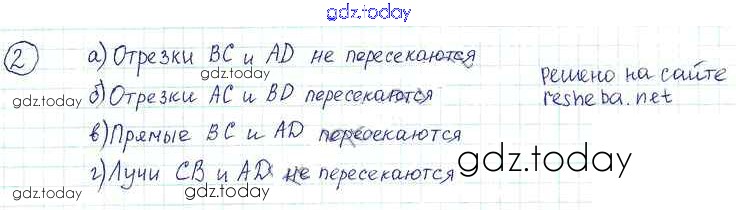 gdz.today
2 а) Отрезки BC и AD не пересекаются
gdz.today
решено на сайте
б) Отрезки AC и BD пересекаются
gdz.today
resheba.net
в) Прямые BC и AD пересекаются
gdz.today
г) Лучи CB и AD не пересекаются
gdz.today gdz.today